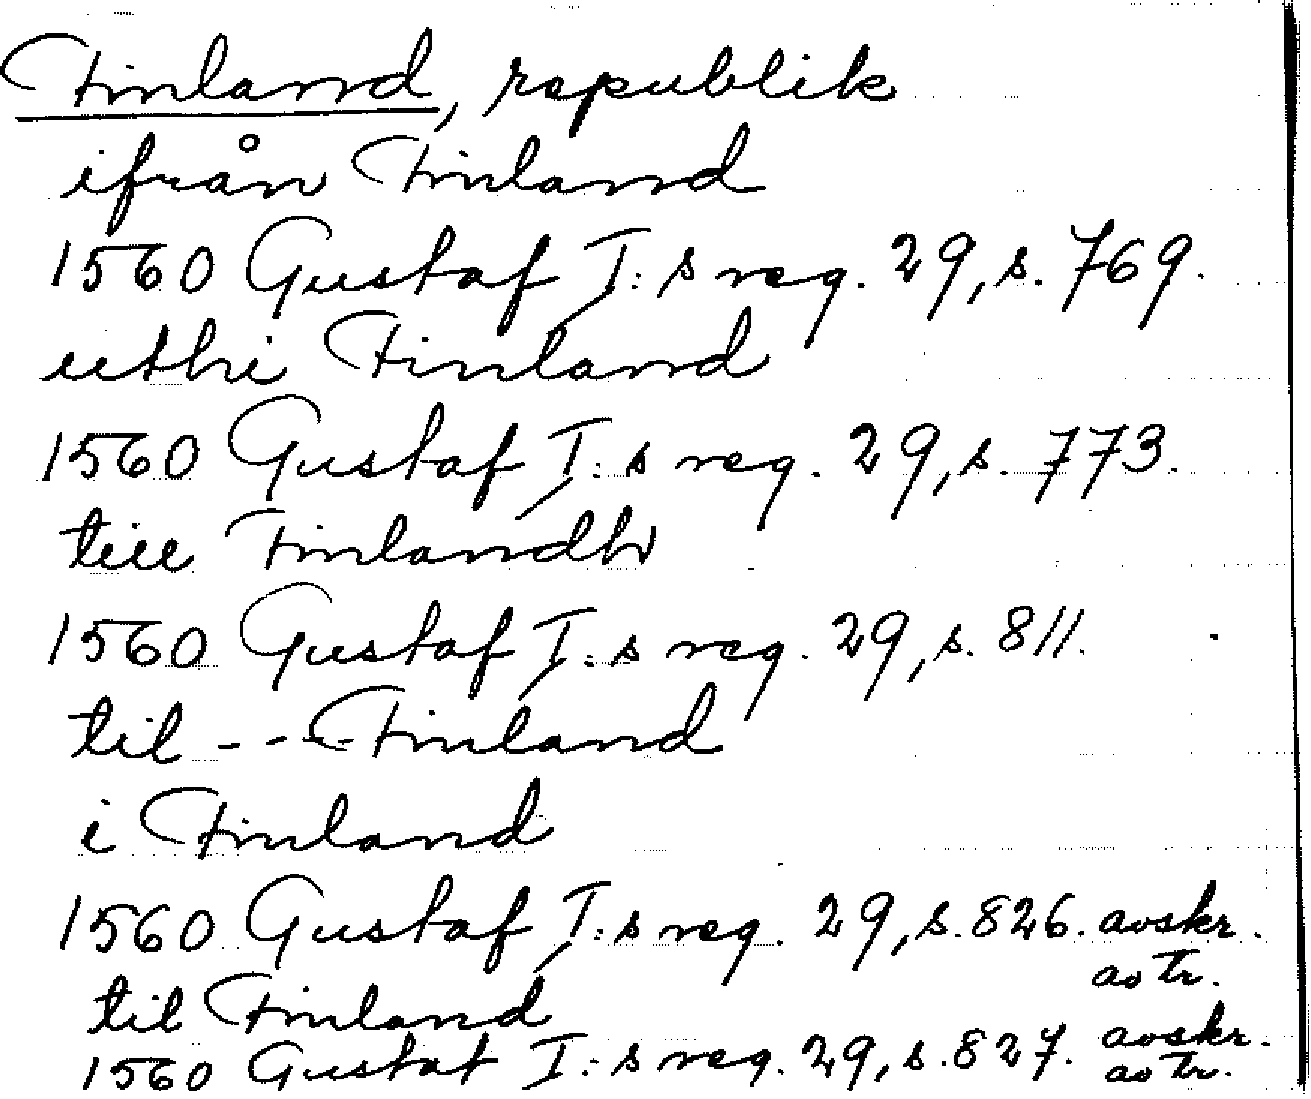 Finland, republik
ifrån Finland
1560 Gustaf I:s reg. 29, s. 769.
uthi Finland
1560 Gustaf I:s reg. 29, s. 773.
till Finlandh
1560 Gustaf I:s reg. 29, s. 811.
til --- Finland
i Finland
1560 Gustaf I:s reg. 29, s. 826. avskr.
av tr.
til Finland
1560 Gustaf I:s reg. 29, s. 827. avskr.
av tr.